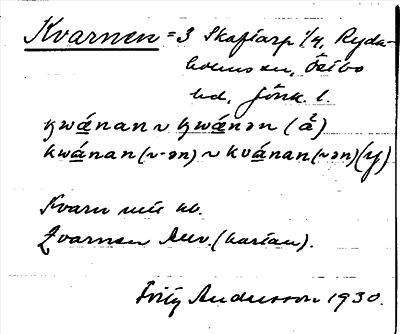 Kvarnen = 3 Skaftarp 1/4, Ryda-
holms sn, Östbo
hd, Jönk. l.
kwánan ~ kwánən (å)
kwánan (~-ən) ~ kvánan (~ən) (y)
Kvarn utt. kb.
Qvarnen Auv. (kartan).
Fritz Andersson 1930.